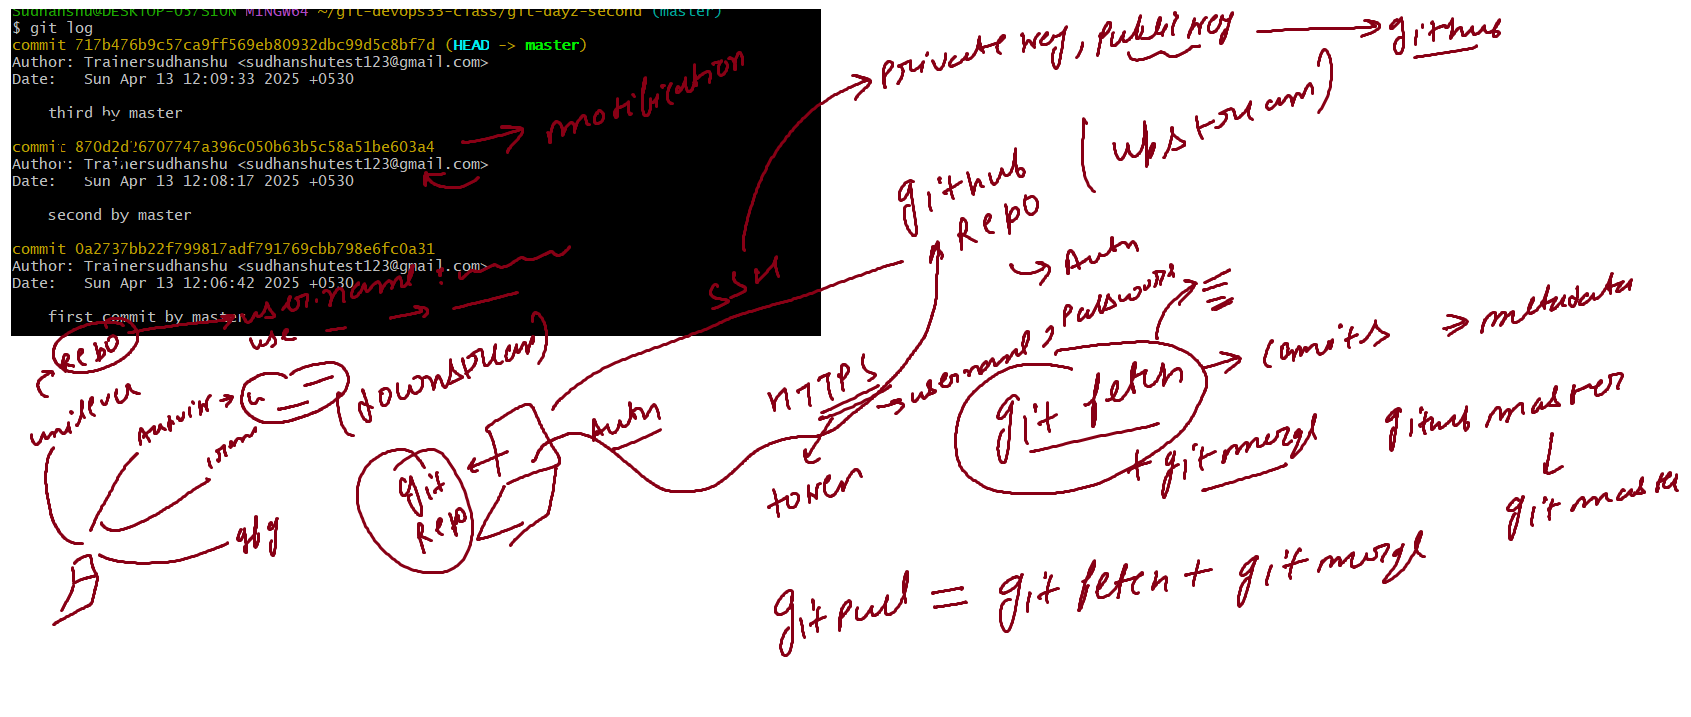 Sudhanshu@DESKTOP-O57S1ON MINGW64 ~/git-devops33-class/git-day2-second (master)
$ git log
commit 717b476b9c57ca9ff569eb80932dbc99d5c8bf7d (HEAD -> master)
Author: Trainersudhanshu <sudhanshutest123@gmail.com>
Date:   Sun Apr 13 12:09:33 2025 +0530
third by master
commit 870d2d26707747a396c050b63b5c58a51be603a4
Author: Trainersudhanshu <sudhanshutest123@gmail.com>
Date:   Sun Apr 13 12:08:17 2025 +0530
second by master
commit 0a2737bb22f799817adf791769cbb798e6fc0a31
Author: Trainersudhanshu <sudhanshutest123@gmail.com>
Date:   Sun Apr 13 12:06:42 2025 +0530
first commit by master
notification
private key, public key → github
(upstream)
github
Repo
Auth
SSH
user.name :
use
Repo
unilever
(downstream)
git
Repo
Auth
HTTPS → username, password
token
git fetch → commits ⇒ metadata
+ git merge
github master
↓
git master
git pull = git fetch + git merge